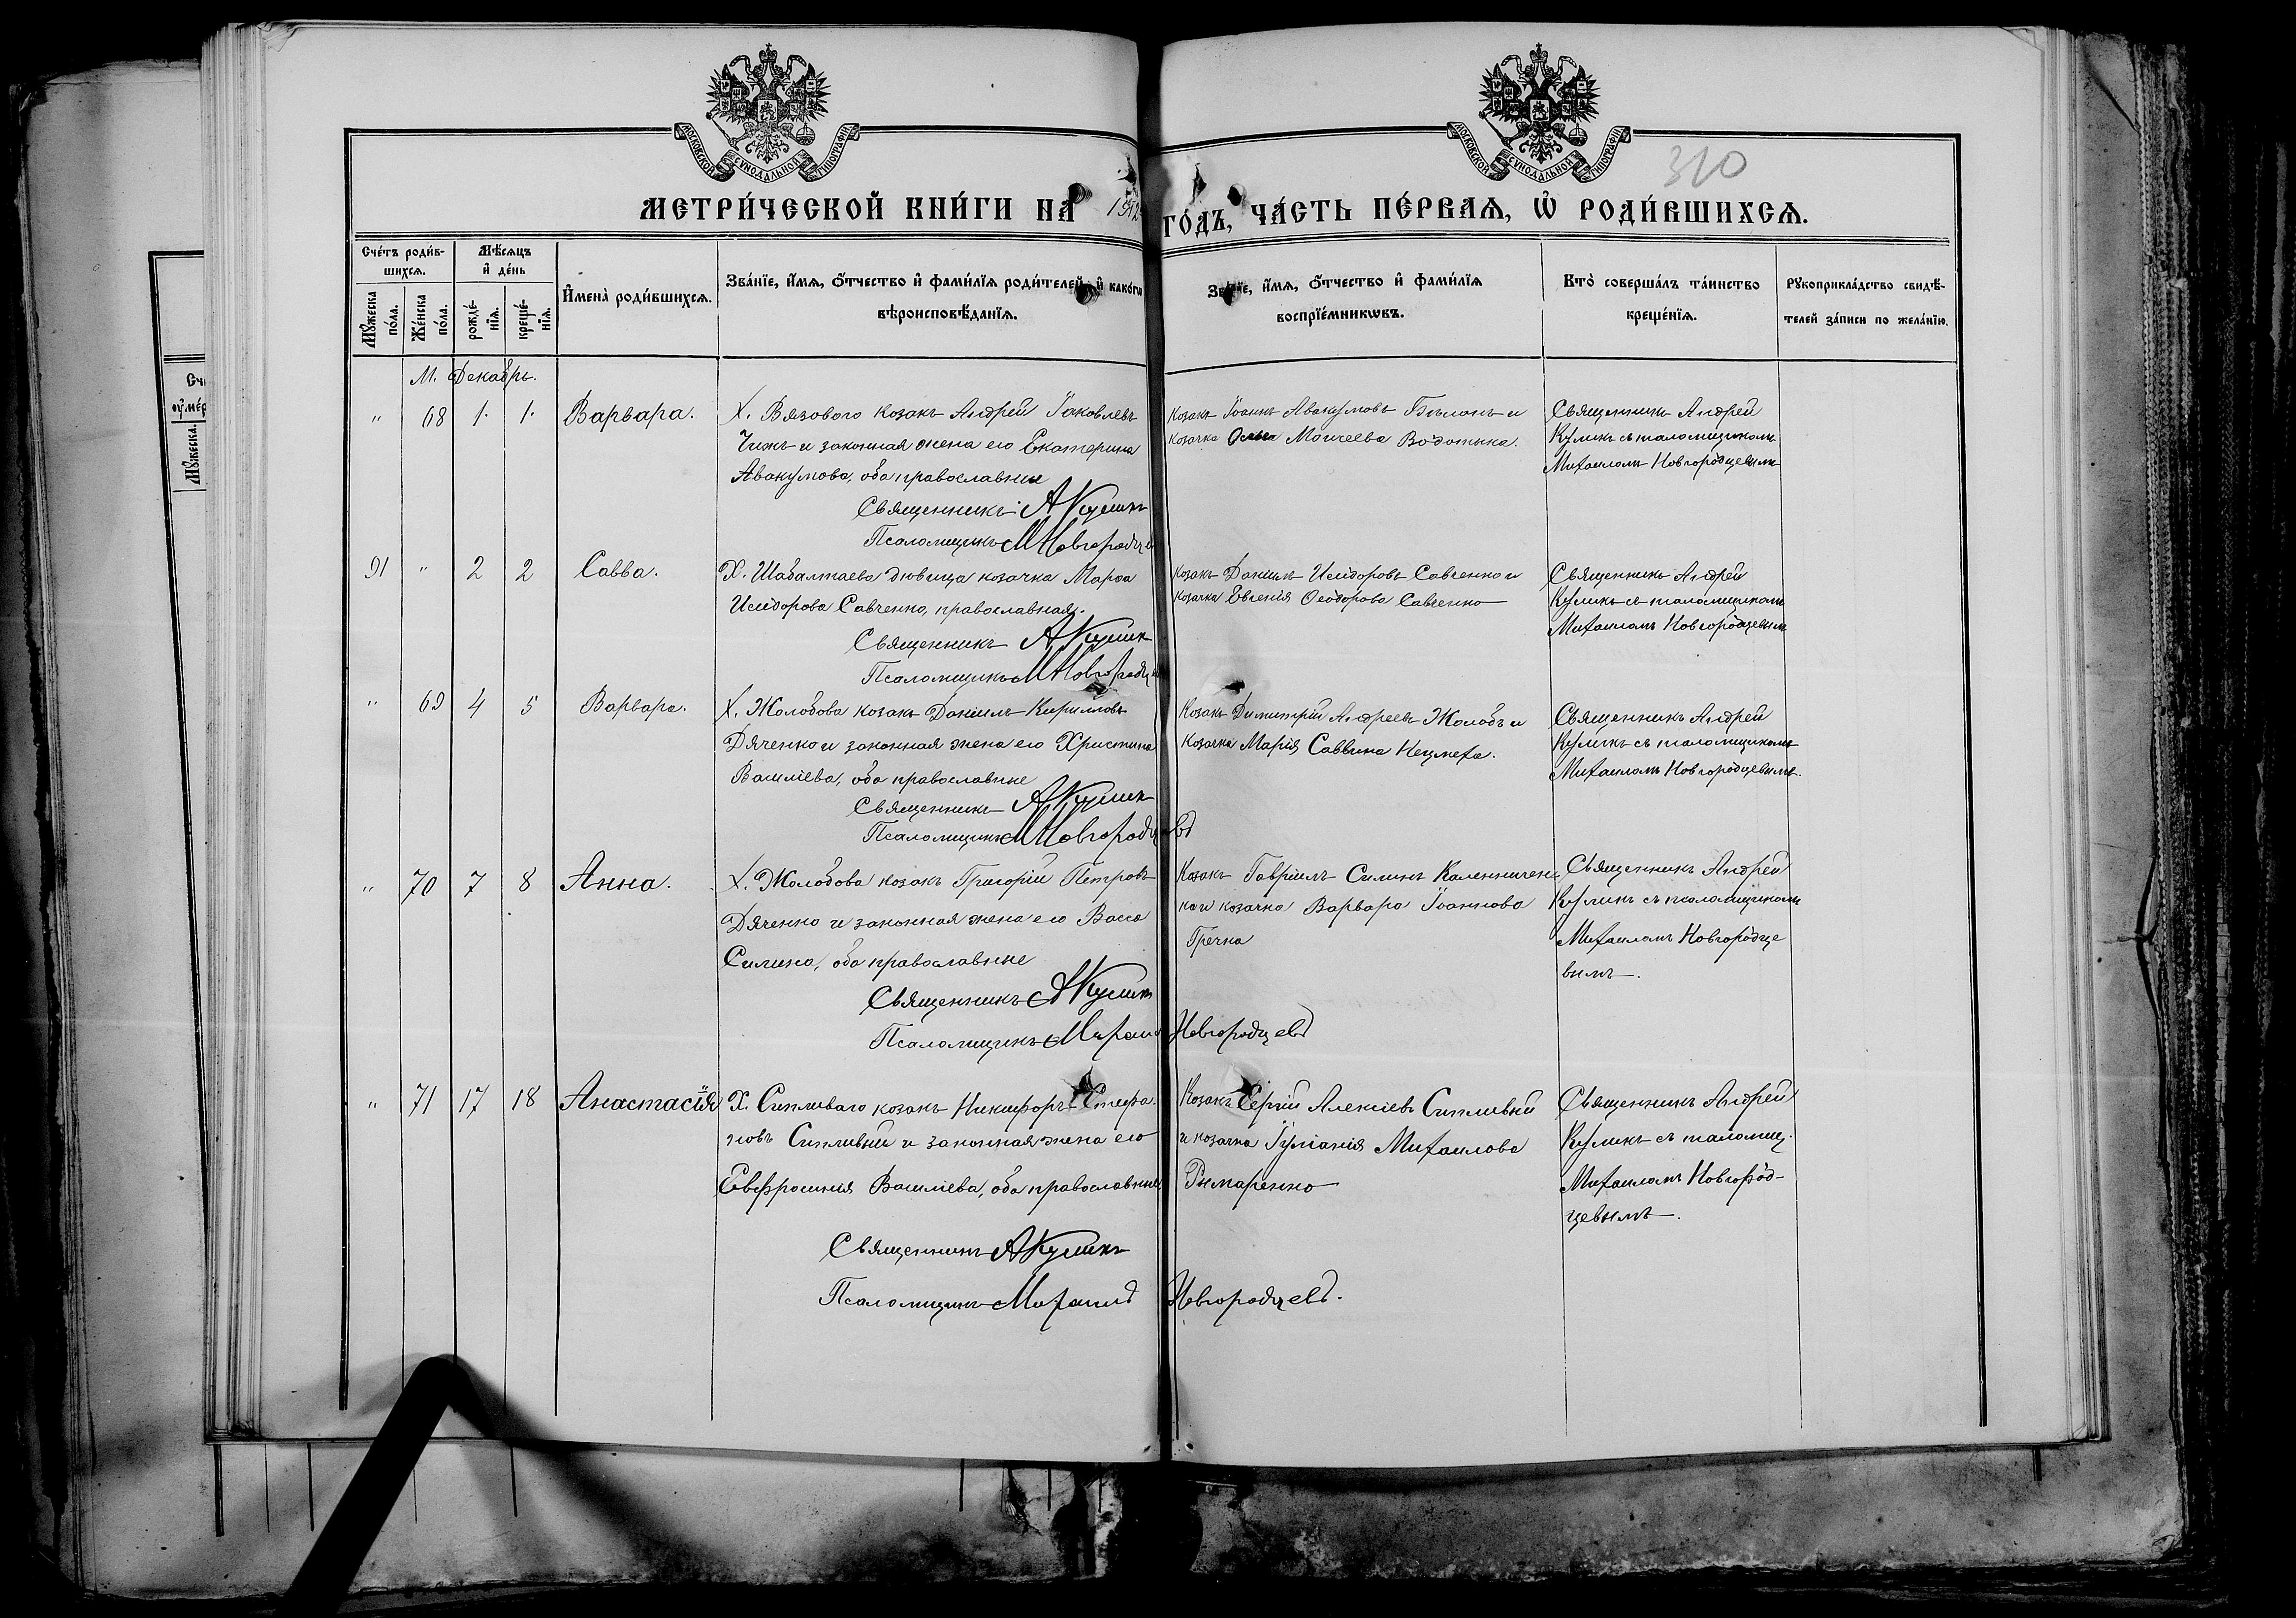 МОСКОВСКОЙ СУНОДАЛЬНОЙ ТИПОГРАФІИ
МОСКОВСКОЙ СУНОДАЛЬНОЙ ТИПОГРАФІИ
310
МЕТРИ́ЧЕСКОЙ КНИ́ГИ НА
ГО́ДЪ, ЧА́СТЬ ПЕ́РВАѦ, Ѡ҆ РОДИ́ВШИХСѦ.
Сче́тъ роди́в-
шихсѧ.
Мѣ́сѧцъ
и҆ де́нь
Мꙋ́жеска по́ла.
Же́нска по́ла.
рожде́-нїѧ.
креще́-нїѧ.
И҆мена̀ роди́вшихсѧ.
Зва́нїе, и҆́мѧ, ѻ҆́тчество и҆ фами́лїѧ роди́телей, и҆ како́гѡ
вѣроисповѣ́данїѧ.
Зва́нїе, и҆́мѧ, ѻ҆́тчество и҆ фами́лїѧ
воспрїе́мникѡвъ.
Кто̀ соверша́лъ та́инство
креще́нїѧ.
Рꙋкоприкла́дство свидѣ́-
телей за́писи по жела́нїю.
М. Декабрь.
" 68 1. 1. Варвара.
Х. Вязового козакъ Андрей Іаковлевъ
Чижъ и законная жена его Екатерина
Авакумова, оба православные
Священникъ АКуликъ
Псаломщикъ МНовгородц
Козакъ Іоаннъ Авакумовъ и
козачка Моисеева
Священникъ Андрей
Куликъ съ псаломщикомъ
Михаиломъ Новгородцевымъ
91 " 2 2 Савва.
Х. Шабалтаева дѣвица козачка Марѳа
Исидорова Савченко, православная.
Священникъ АКуликъ
Псаломщикъ МНовгородц
Козакъ Даніилъ Исидоровъ Савченко и
козачка Евгенія Ѳеодорова Савченко
Священникъ Андрей
Куликъ съ псаломщикомъ
Михаиломъ Новгородцевымъ
" 69 4 5 Варвара.
Х. Жолобова козакъ Даніилъ Кирилловъ
Дяченко и законная жена его Христина
Василіева, оба православные
Священникъ АКуликъ
Псаломщикъ МНовгородцевъ
Козакъ Димитрій Андреевъ Жолобъ и
козачка Марія Саввина
Священникъ Андрей
Куликъ съ псаломщикомъ
Михаиломъ Новгородцевымъ.
" 70 7 8 Анна.
Х. Жолобова козакъ Григорій Петровъ
Дяченко и законная жена его Васса
Силина, оба православные
Священникъ АКуликъ
Псаломщикъ Михаилъ Новгородцевъ
Козакъ Гавріилъ Силинъ Каленничен
ко и козачка Варвара Іоаннова
Гречка
Священникъ Андрей
Куликъ съ псаломщикомъ
Михаиломъ Новгородце
вымъ.
" 71 17 18 Анастасія
Х. Сипливаго козакъ Никифоръ Стефа
новъ Сипливый и законная жена его
Евфросинія Василіева, оба православные
Священникъ АКуликъ
Псаломщикъ Михаилъ Новгородцевъ.
Козакъ Сергій Алексіевъ Сипливый
и козачка Іуліанія Михаилова
Рымаренко
Священникъ Андрей
Куликъ съ псаломщ.
Михаиломъ Новгород-
цевымъ.